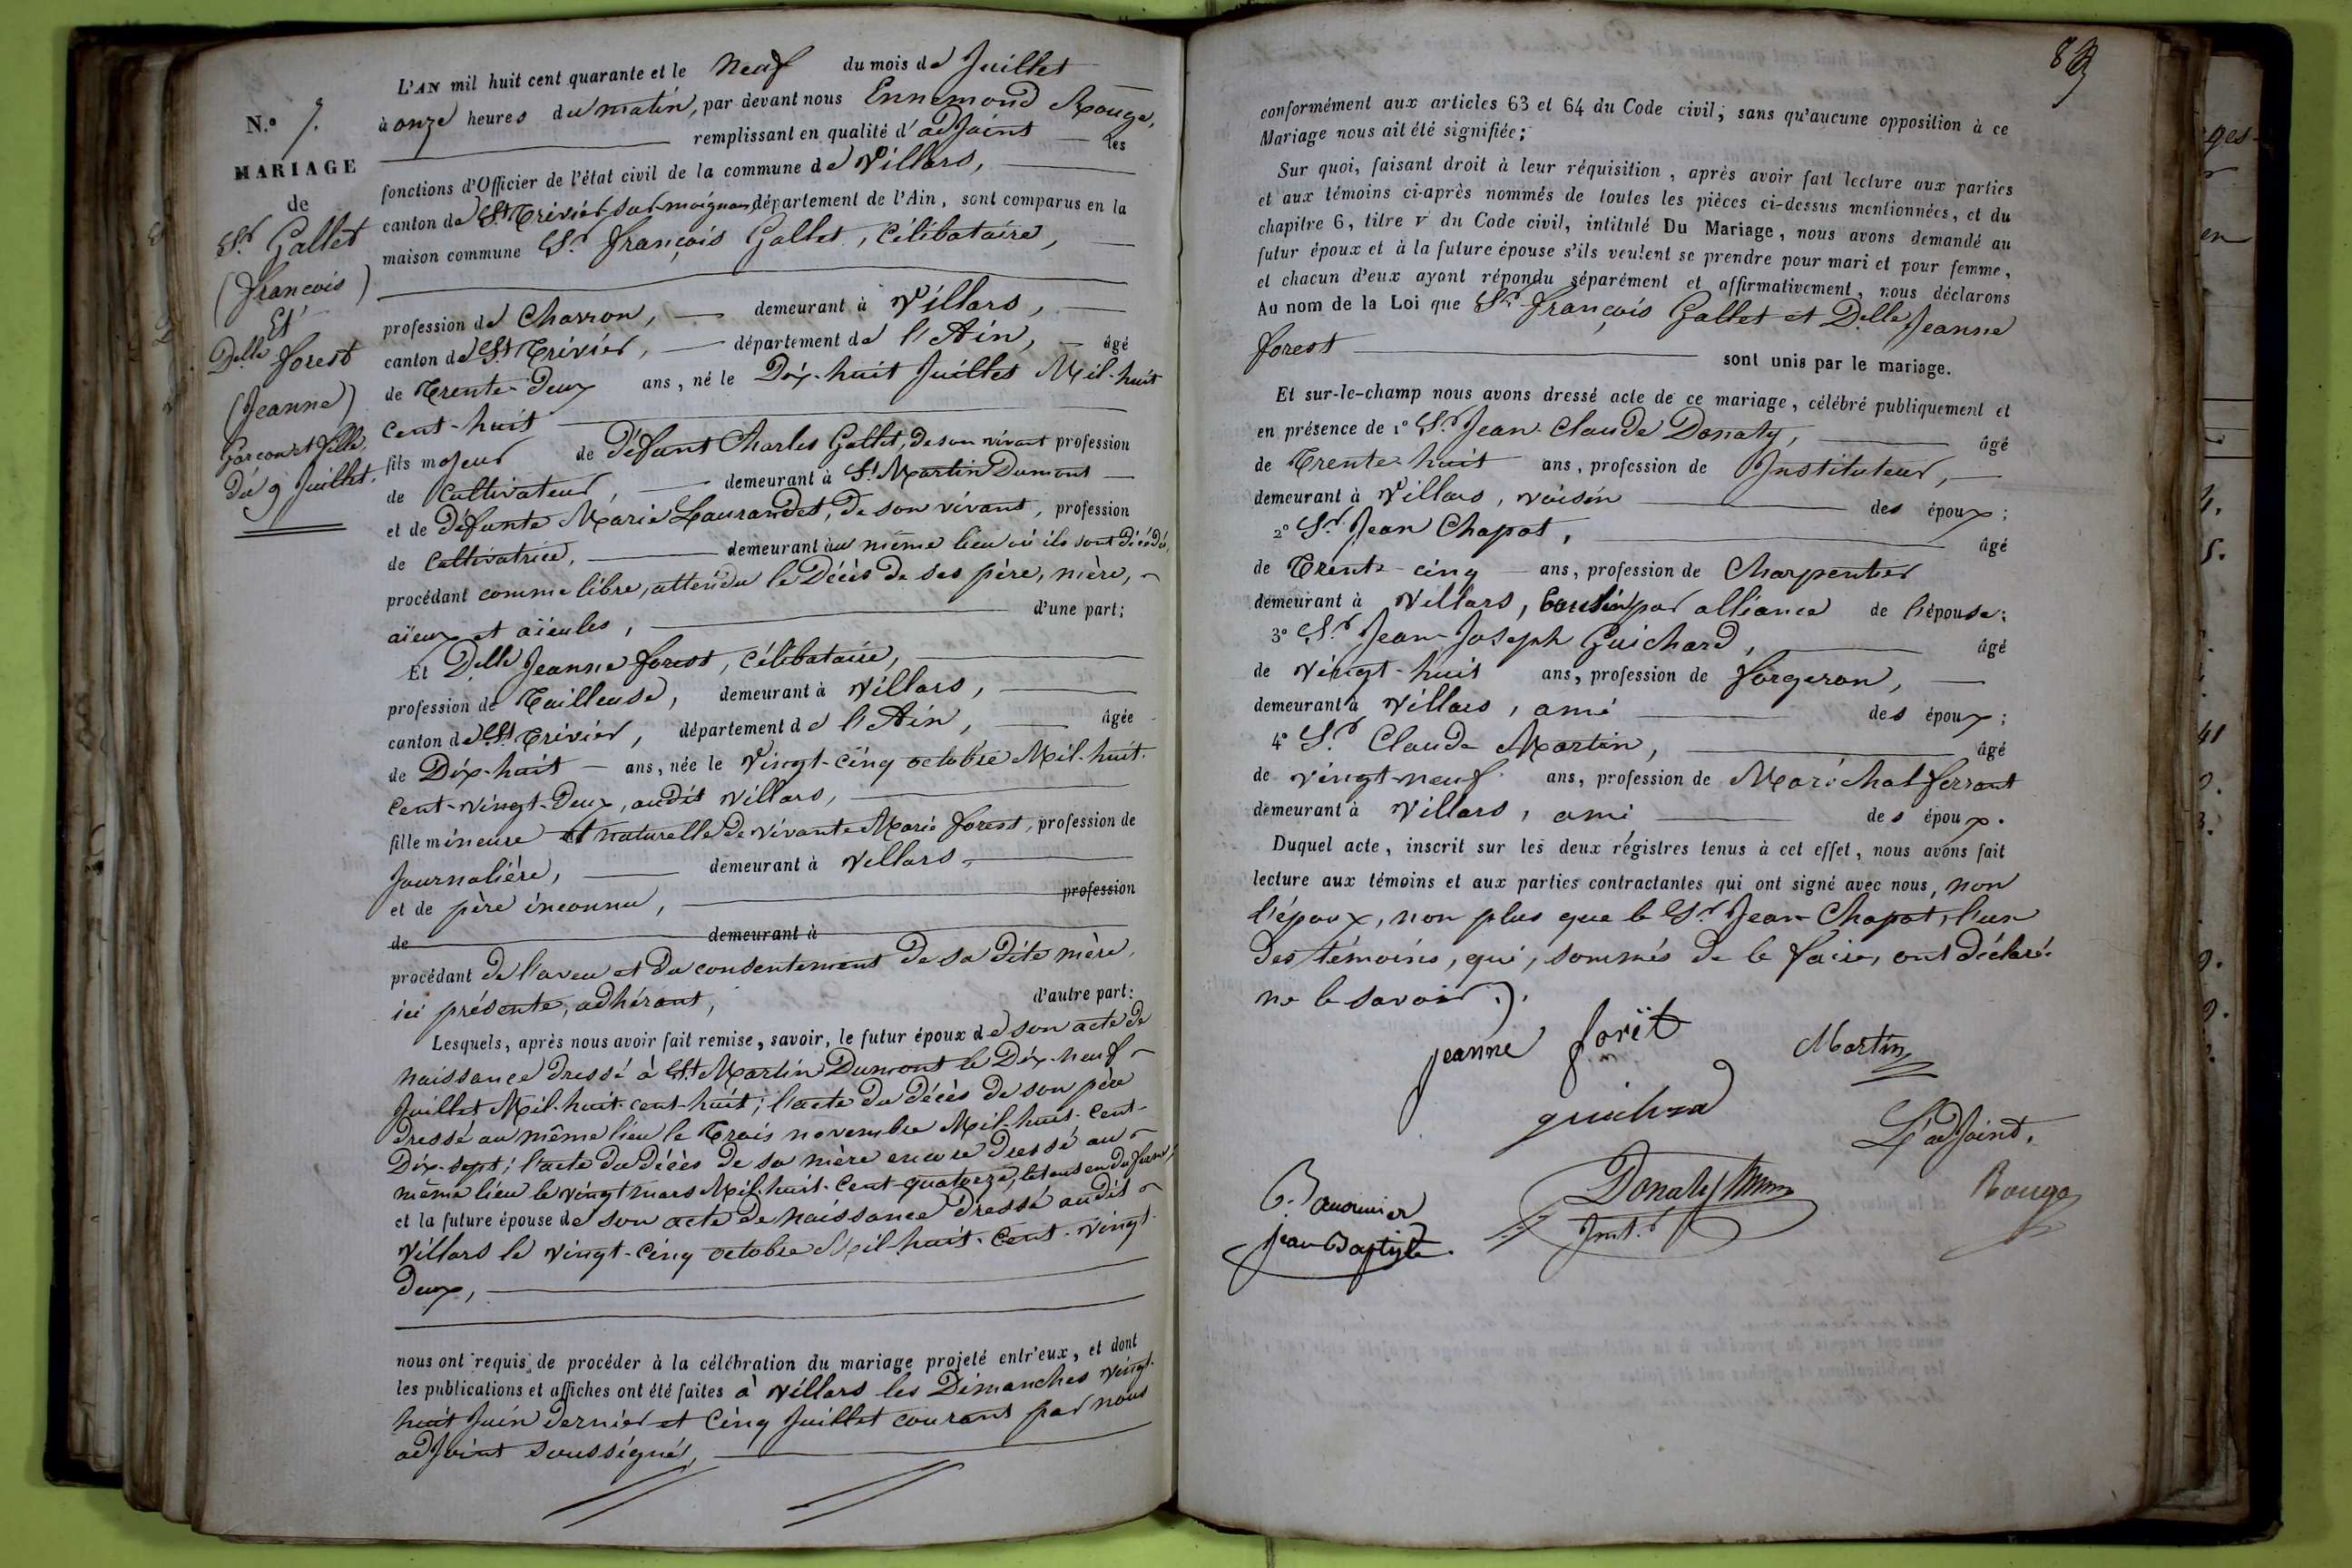 N.º 7.
MARIAGE
de
Sr. Gallet
(françois)
Et
Delle. forest
(Jeanne)
garçon et fille,
du 9 Juillet.
L'AN mil huit cent quarante et le neuf du mois de Juillet
à onze heures du matin, par devant nous Ennemond Rouge,
remplissant en qualité d'adjoint les
fonctions d'Officier de l'état civil de la commune de Villars,
canton de St. Trivier sur moignans département de l'Ain, sont comparus en la
maison commune Sr. françois Gallet, Célibataire,
profession de Charron, demeurant à Villars,
canton de St. Trivier, département de l'Ain, âgé
de Trente-Deux ans, né le Dix-huit Juillet Mil-huit
Cent-huit
fils majeur de Défunt Charles Gallet, de son vivant profession
de Cultivateur, demeurant à St. Martin Dumont
et de Défunte Marie Laurandet, De son vivant, profession
de Cultivatrice, demeurant au même lieu où ils sont Décédés,
procédant comme libre, attendu le Décès de ses père, mère,
aïeux et aïeules, d'une part;
Et Delle. Jeanne forest, Célibataire,
profession de Tailleuse, demeurant à Villars,
canton de St. Trivier, département de l'Ain, âgée
de Dix-huit ans, née le Vingt-Cinq octobre Mil-huit-
Cent-vingt-Deux, audit Villars,
fille mineure et naturelle De vivante Marie forest, profession de
Journalière, demeurant à Villars
et de père inconnu, profession
de demeurant à
procédant De l'aveu et du consentement De sa Dite mère,
ici présente, adhérant, d'autre part:
Lesquels, après nous avoir fait remise, savoir, le futur époux de son acte de
Naissance Dressé à St. Martin Dumont le Dix-neuf
Juillet Mil-huit-cent-huit; l'acte du Décès De son père
Dressé au même lieu le Trois novembre Mil-huit-Cent-
Dix-sept; l'acte du Décès De sa mère encore Dressé au
même lieu le vingt mars Mil-huit-Cent-quatorze, le tout en due forme;
et la future épouse de son acte De Naissance Dressé audit
Villars le vingt-cinq octobre Mil-huit-Cent-vingt-
Deux,
nous ont requis de procéder à la célébration du mariage projeté entr'eux, et dont
les publications et affiches ont été faites à Villars les Dimanches vingt-
huit Juin Dernier et Cinq Juillet courant par nous
adjoint soussigné,
conformément aux articles 63 et 64 du Code civil; sans qu'aucune opposition à ce
Mariage nous ait été signifiée;
Sur quoi, faisant droit à leur réquisition, après avoir fait lecture aux parties
et aux témoins ci-après nommés de toutes les pièces ci-dessus mentionnées, et du
chapitre 6, titre v du Code civil, intitulé Du Mariage, nous avons demandé au
futur époux et à la future épouse s'ils veulent se prendre pour mari et pour femme,
et chacun d'eux ayant répondu séparément et affirmativement, nous déclarons
Au nom de la Loi que Sr. françois Gallet et Delle. Jeanne
forest sont unis par le mariage.
Et sur-le-champ nous avons dressé acte de ce mariage, célébré publiquement et
en présence de 1º Sr. Jean-Claude Donaty, âgé
de Trente-huit ans, profession de Instituteur,
demeurant à Villars, voisin des époux;
2º Sr. Jean Chapot, âgé
de Trente-cinq ans, profession de Charpentier
demeurant à Villars, Cousin par alliance de l'épouse;
3º Sr. Jean-Joseph Guichard, âgé
de vingt-huit ans, profession de forgeron,
demeurant à Villars, ami des époux;
4º Sr. Claude Martin, âgé
de vingt-neuf ans, profession de Maréchal ferrant
demeurant à Villars, ami des époux.
Duquel acte, inscrit sur les deux régistres tenus à cet effet, nous avons fait
lecture aux témoins et aux parties contractantes qui ont signé avec nous, non
l'époux, non plus que le Sr. Jean Chapot, l'un
Des témoins, qui, sommés De le faire, ont Déclaré
ne le savoir.
jeanne forït
Martin
guichard
L'adjoint,
Donaty
Inst.r
Rouge
jean Baptiste